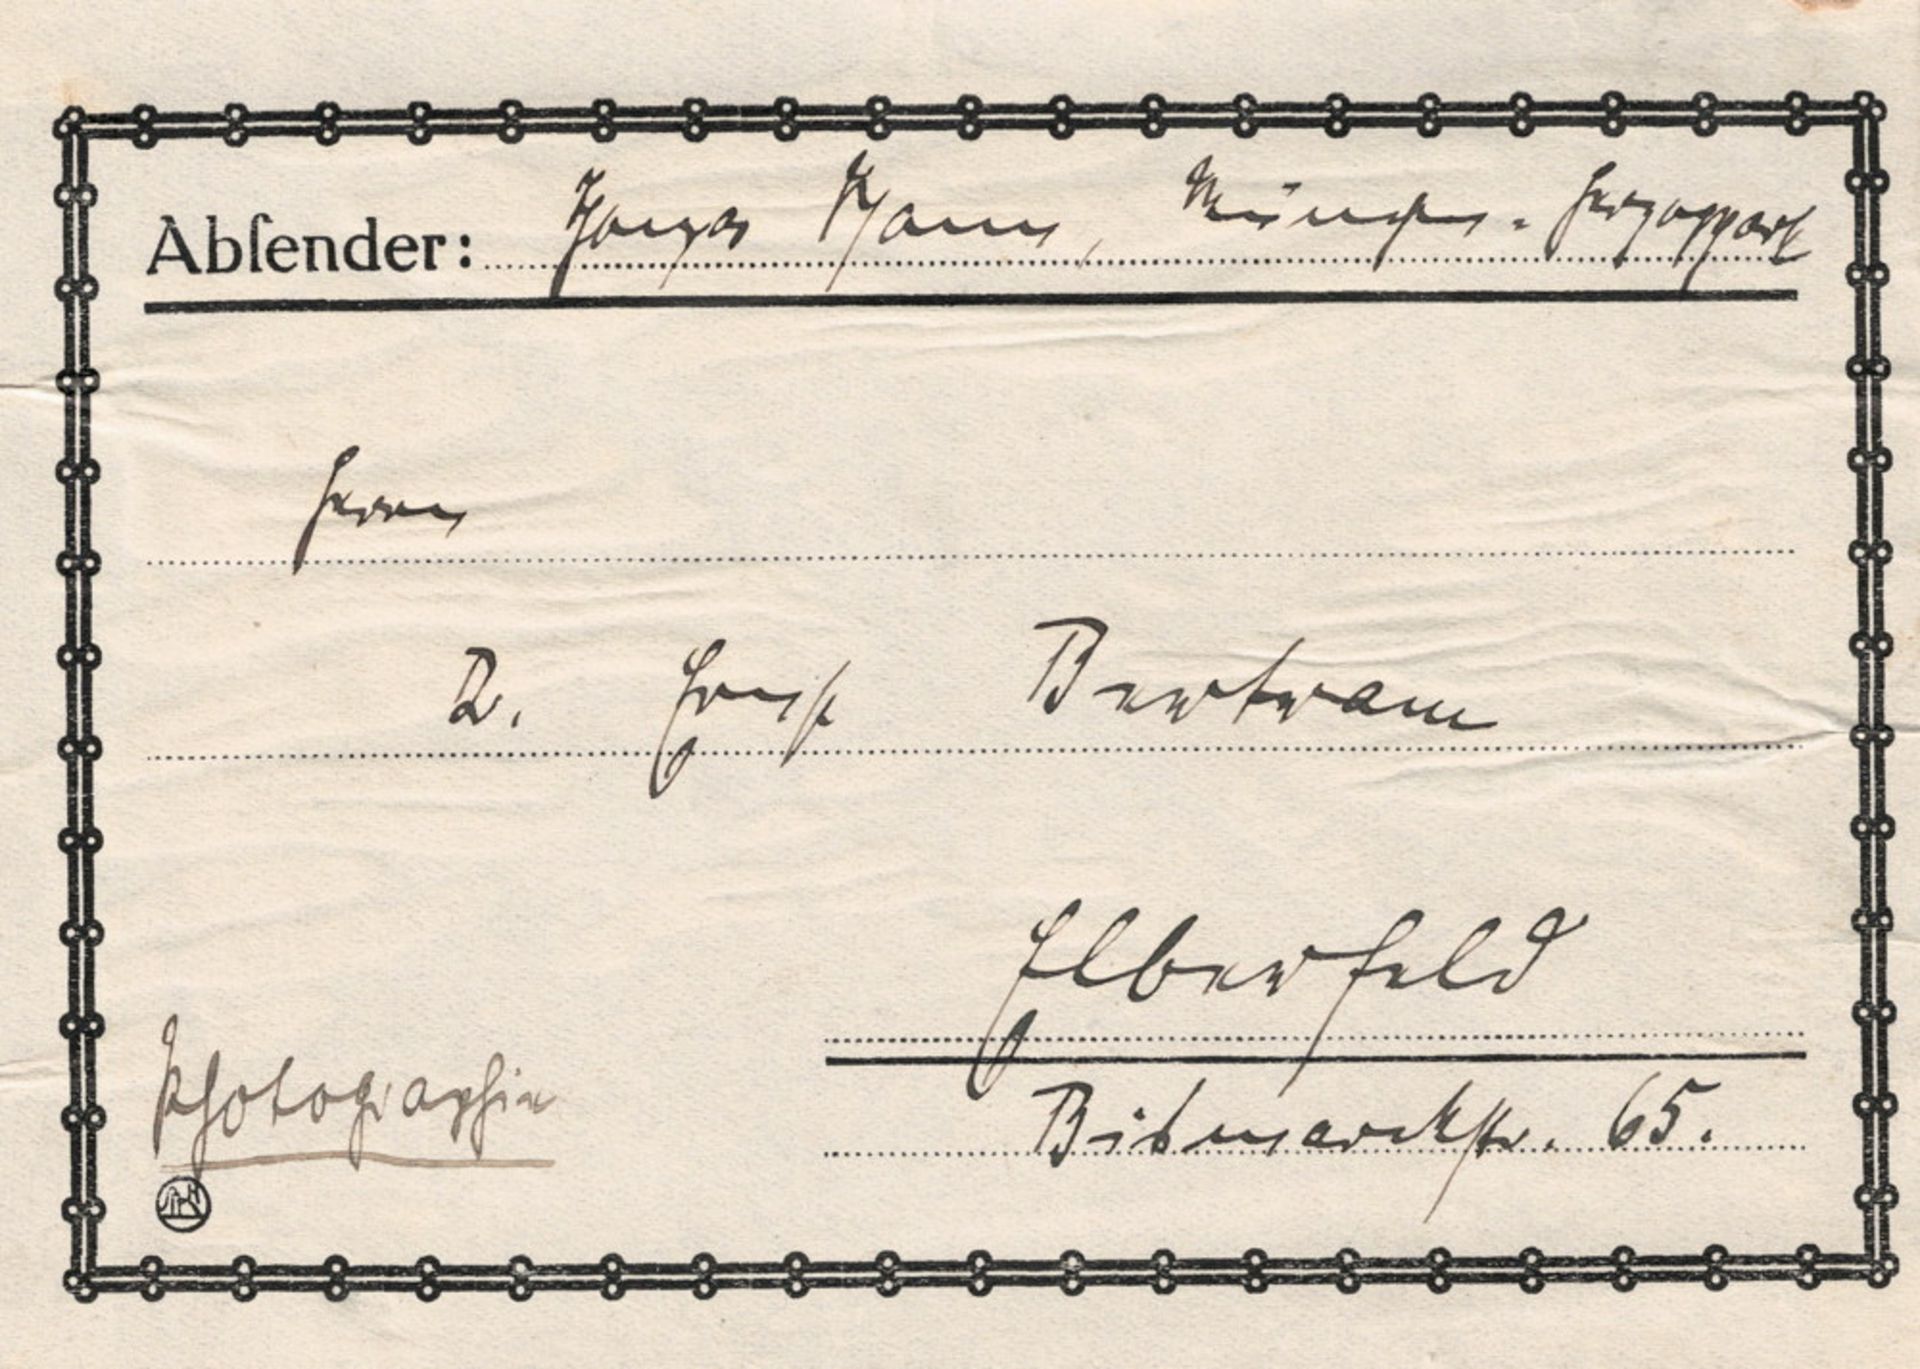 Abſender: Thomas Mann, München. Herzogpark
Herrn
Dr. Ernst Bertram
Elberfeld
Bismarckstr. 65.
Photographie